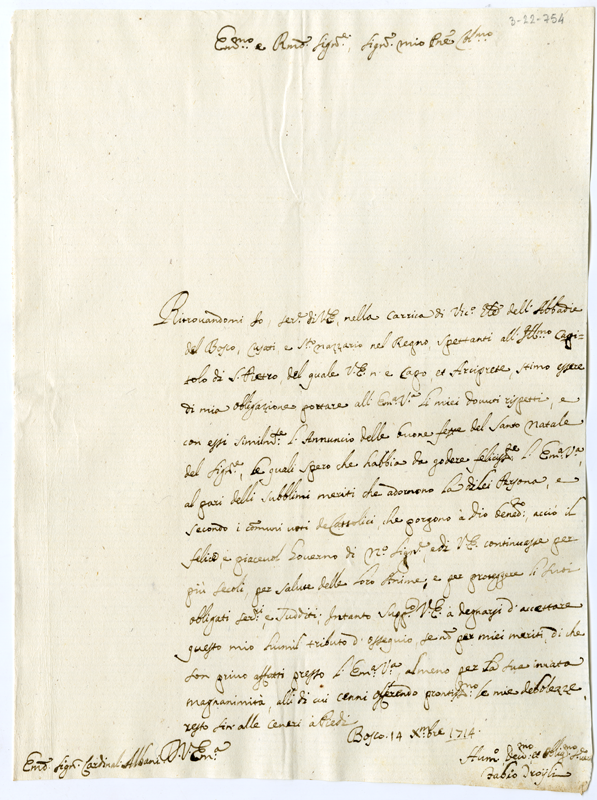 3-22-754
Em.mo e Rmo. Sign.re, Sign.r mio Pne Col.mo
Ritrovandomi Io, Ser.e di V.E. nella Carrica di Vic.o Gle dell'Abbadia
del Bosco, Casati e S. Nazzario nel Regno, spettanti all'Ill.mo Capi-
tolo di S. Pietro, del quale V.E. n'è Capo, et Arciprete, stimo essere
di mia obligazione portare all'Em.a V.a li miei dovuti rispetti, e
con essi similm.te l'Annuncio delle buone feste del Santo Natale
del Sign.re, le quali spero che habbia da godere feliciss.e l'Em.a V.a,
al pari delli subblimi meriti che adornono la di lei Persona, e
secondo i comuni voti de Cattolici, che porgono à Dio bened.o, acciò il
felice, e piacevol Governo di N.o Sign.re, e di V.E. continuasse per
più secoli, per salute delle loro Anime, e per proteggere li suoi
obligati ser.i, e sudditi. Intanto supp.co V.E. à degnarsi d'accettare
questo mio humil tributo d'ossequio, se nò per miei meriti, di che
son privo affatti presso l'Em.a V.a, almeno per la sua innata
magnanimità, alli di cui cenni offerendo prontiss.mo le mie debolezze,
resto sin'alle ceneri à Piedi
Bosco 14 X.bre 1714.
Em.o Sign.r Cardinal Albani D.V. Em.a
Hum.o Dev.mo et oblig.mo
Fabio